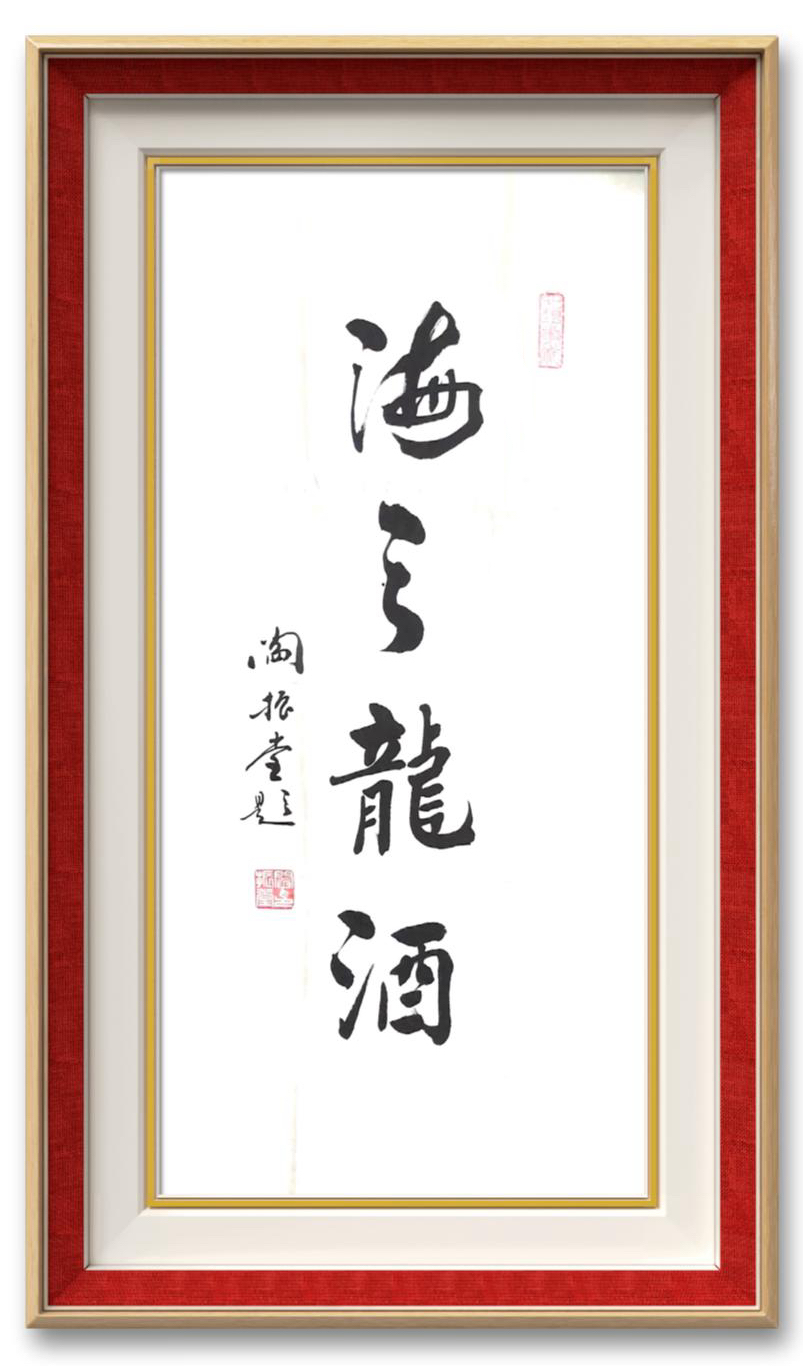 海之龍酒
陶振堂題